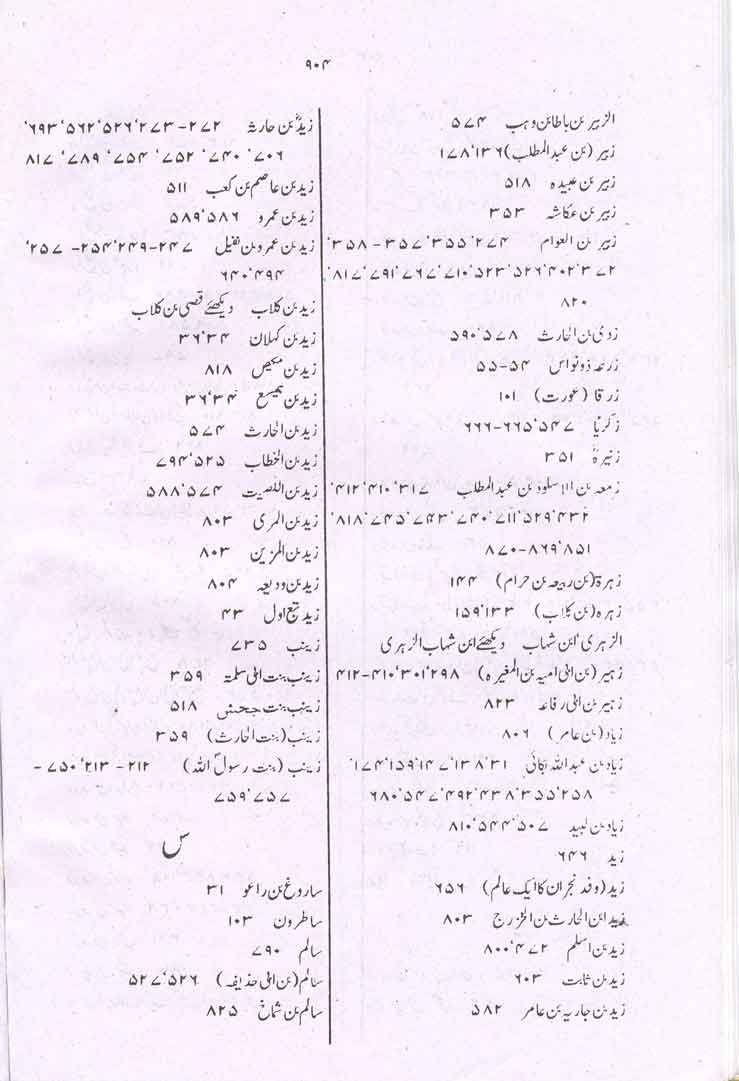 ۹۰۴
الزبیر بن باطا بن وہب ۵۷۴
زبیر (بن عبدالمطلب) ۱۳۶٬ ۱۷۸
زبیر بن عبیدہ ۵۱۸
زبیر بن عکاشہ ۳۵۳
زبیر بن العوام ۲۷۴٬ ۳۵۵٬ ۳۵۷ - ۳۵۸٬
۳۷۲٬ ۴۰۲٬ ۵۲۶٬ ۵۲۳٬ ۷۱۰٬ ۷۶۷٬ ۷۹۱٬ ۸۱۷٬
۸۲۰
زوی بن الحارث ۵۷۸٬ ۵۹۰
زرعہ ذونواس ۵۴-۵۵
زرقا (عورت) ۱۰۱
زکریا ۵۴۷٬ ۶۶۵-۶۶۶
زنیرہ ۳۵۱
زمعہ بن الاسود بن عبدالمطلب ۳۱۷٬ ۴۱۰٬ ۴۱۲٬
۴۳۲٬ ۵۲۹٬ ۷۱۱٬ ۷۴۰٬ ۷۴۳٬ ۷۴۵٬ ۸۱۸٬
۸۵۱٬ ۸۶۹-۸۷۰
زہرۃ (بن ربیعہ بن حرام) ۱۴۴
زہرہ (بن کلاب) ۱۳۳٬ ۱۵۹
الزہری٬ ابن شہاب دیکھئے ابن شہاب الزہری
زہیر (بن ابی امیہ بن المغیرہ) ۲۹۸٬ ۳۰۱٬ ۴۱۰-۴۱۲
زہیر بن ابی رفاعہ ۸۲۳
زیاد (بن عامر) ۸۰۶
زیاد بن عبداللہ بکائی ۳۱٬ ۱۳۸٬ ۱۴۷٬ ۱۵۹٬ ۱۷۴٬
۲۵۸٬ ۳۵۵٬ ۴۳۸٬ ۴۹۲٬ ۵۴۷٬ ۶۸۰
زیاد بن لبید ۵۰۷٬ ۵۴۴٬ ۸۱۰
زید ۶۴۶
زید (وفد نجران کا ایک عالم) ۶۵۶
زید ابن الحارث بن الخزرج ۸۰۳
زید بن اسلم ۴۷۲٬ ۸۰۰
زید بن ثابت ۶۰۳
زید بن جاریہ بن عامر ۵۸۲
زید بن حارثہ ۲۷۲-۲۷۳٬ ۵۲۶٬ ۵۶۲٬ ۶۹۳٬
۷۰۶٬ ۷۴۰٬ ۷۵۲٬ ۷۵۴٬ ۷۸۹٬ ۸۱۷
زید بن عاصم بن کعب ۵۱۱
زید بن عمرو ۵۸۶٬ ۵۸۹
زید بن عمرو بن نفیل ۲۴۷-۲۴۹٬ ۲۵۴ - ۲۵۷٬
۴۹۴٬ ۶۴۰
زید بن کلاب دیکھئے قصی بن کلاب
زید بن کہلان ۳۴٬ ۳۶
زید بن ملیص ۸۱۸
زید بن ہمیسع ۳۴٬ ۳۶
زید بن الحارث ۵۷۴
زید بن الخطاب ۵۲۵٬ ۷۹۴
زید بن اللصیت ۵۷۴٬ ۵۸۸
زید بن المری ۸۰۳
زید بن المزین ۸۰۳
زید بن ودیعہ ۸۰۴
زید تبع اول ۴۳
زینب ۷۳۵
زینب بنت ابی سلمۃ ۳۵۹
زینب بنت جحش ۵۱۸
زینب (بنت الحارث) ۳۵۹
زینب (بنت رسول اللہ) ۲۱۲ - ۲۱۳٬ ۷۵۰ -
۷۵۷٬ ۷۵۹
س
ساروغ بن راعو ۳۱
ساطرون ۱۰۳
سالم ۷۹۰
سالم (بن ابی حذیفہ) ۵۲۶٬ ۵۲۷
سالم بن شماخ ۸۲۵